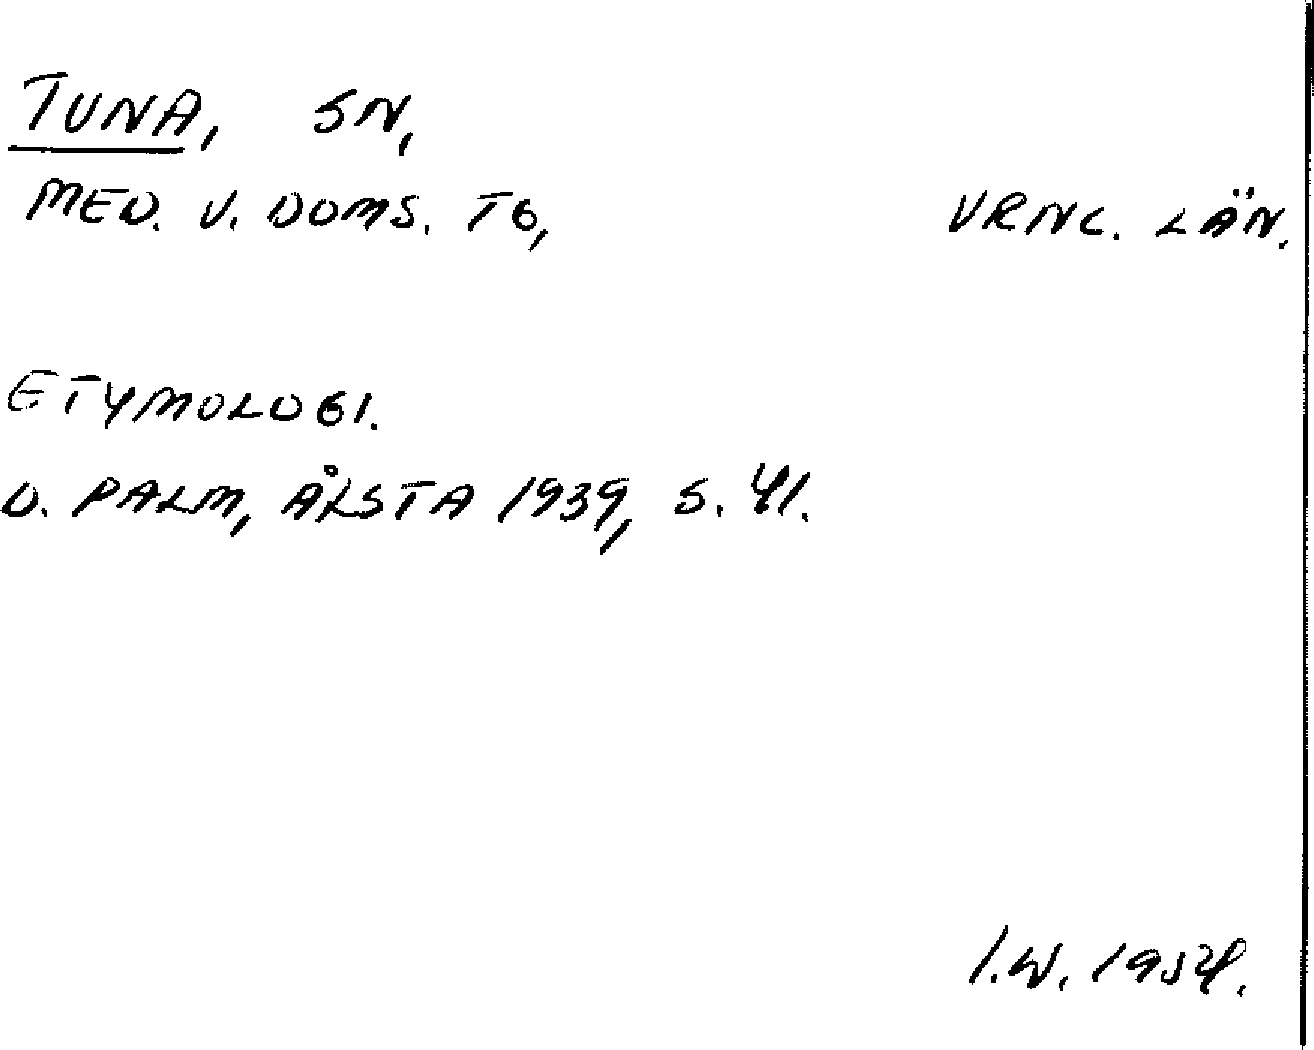 TUNA, SN,
MED. V. DOMS. TG, VRNL. LÄN.
ETYMOLOGI.
D. PALM, ÅLSTA 1939, S. 41.
I.W. 1954.